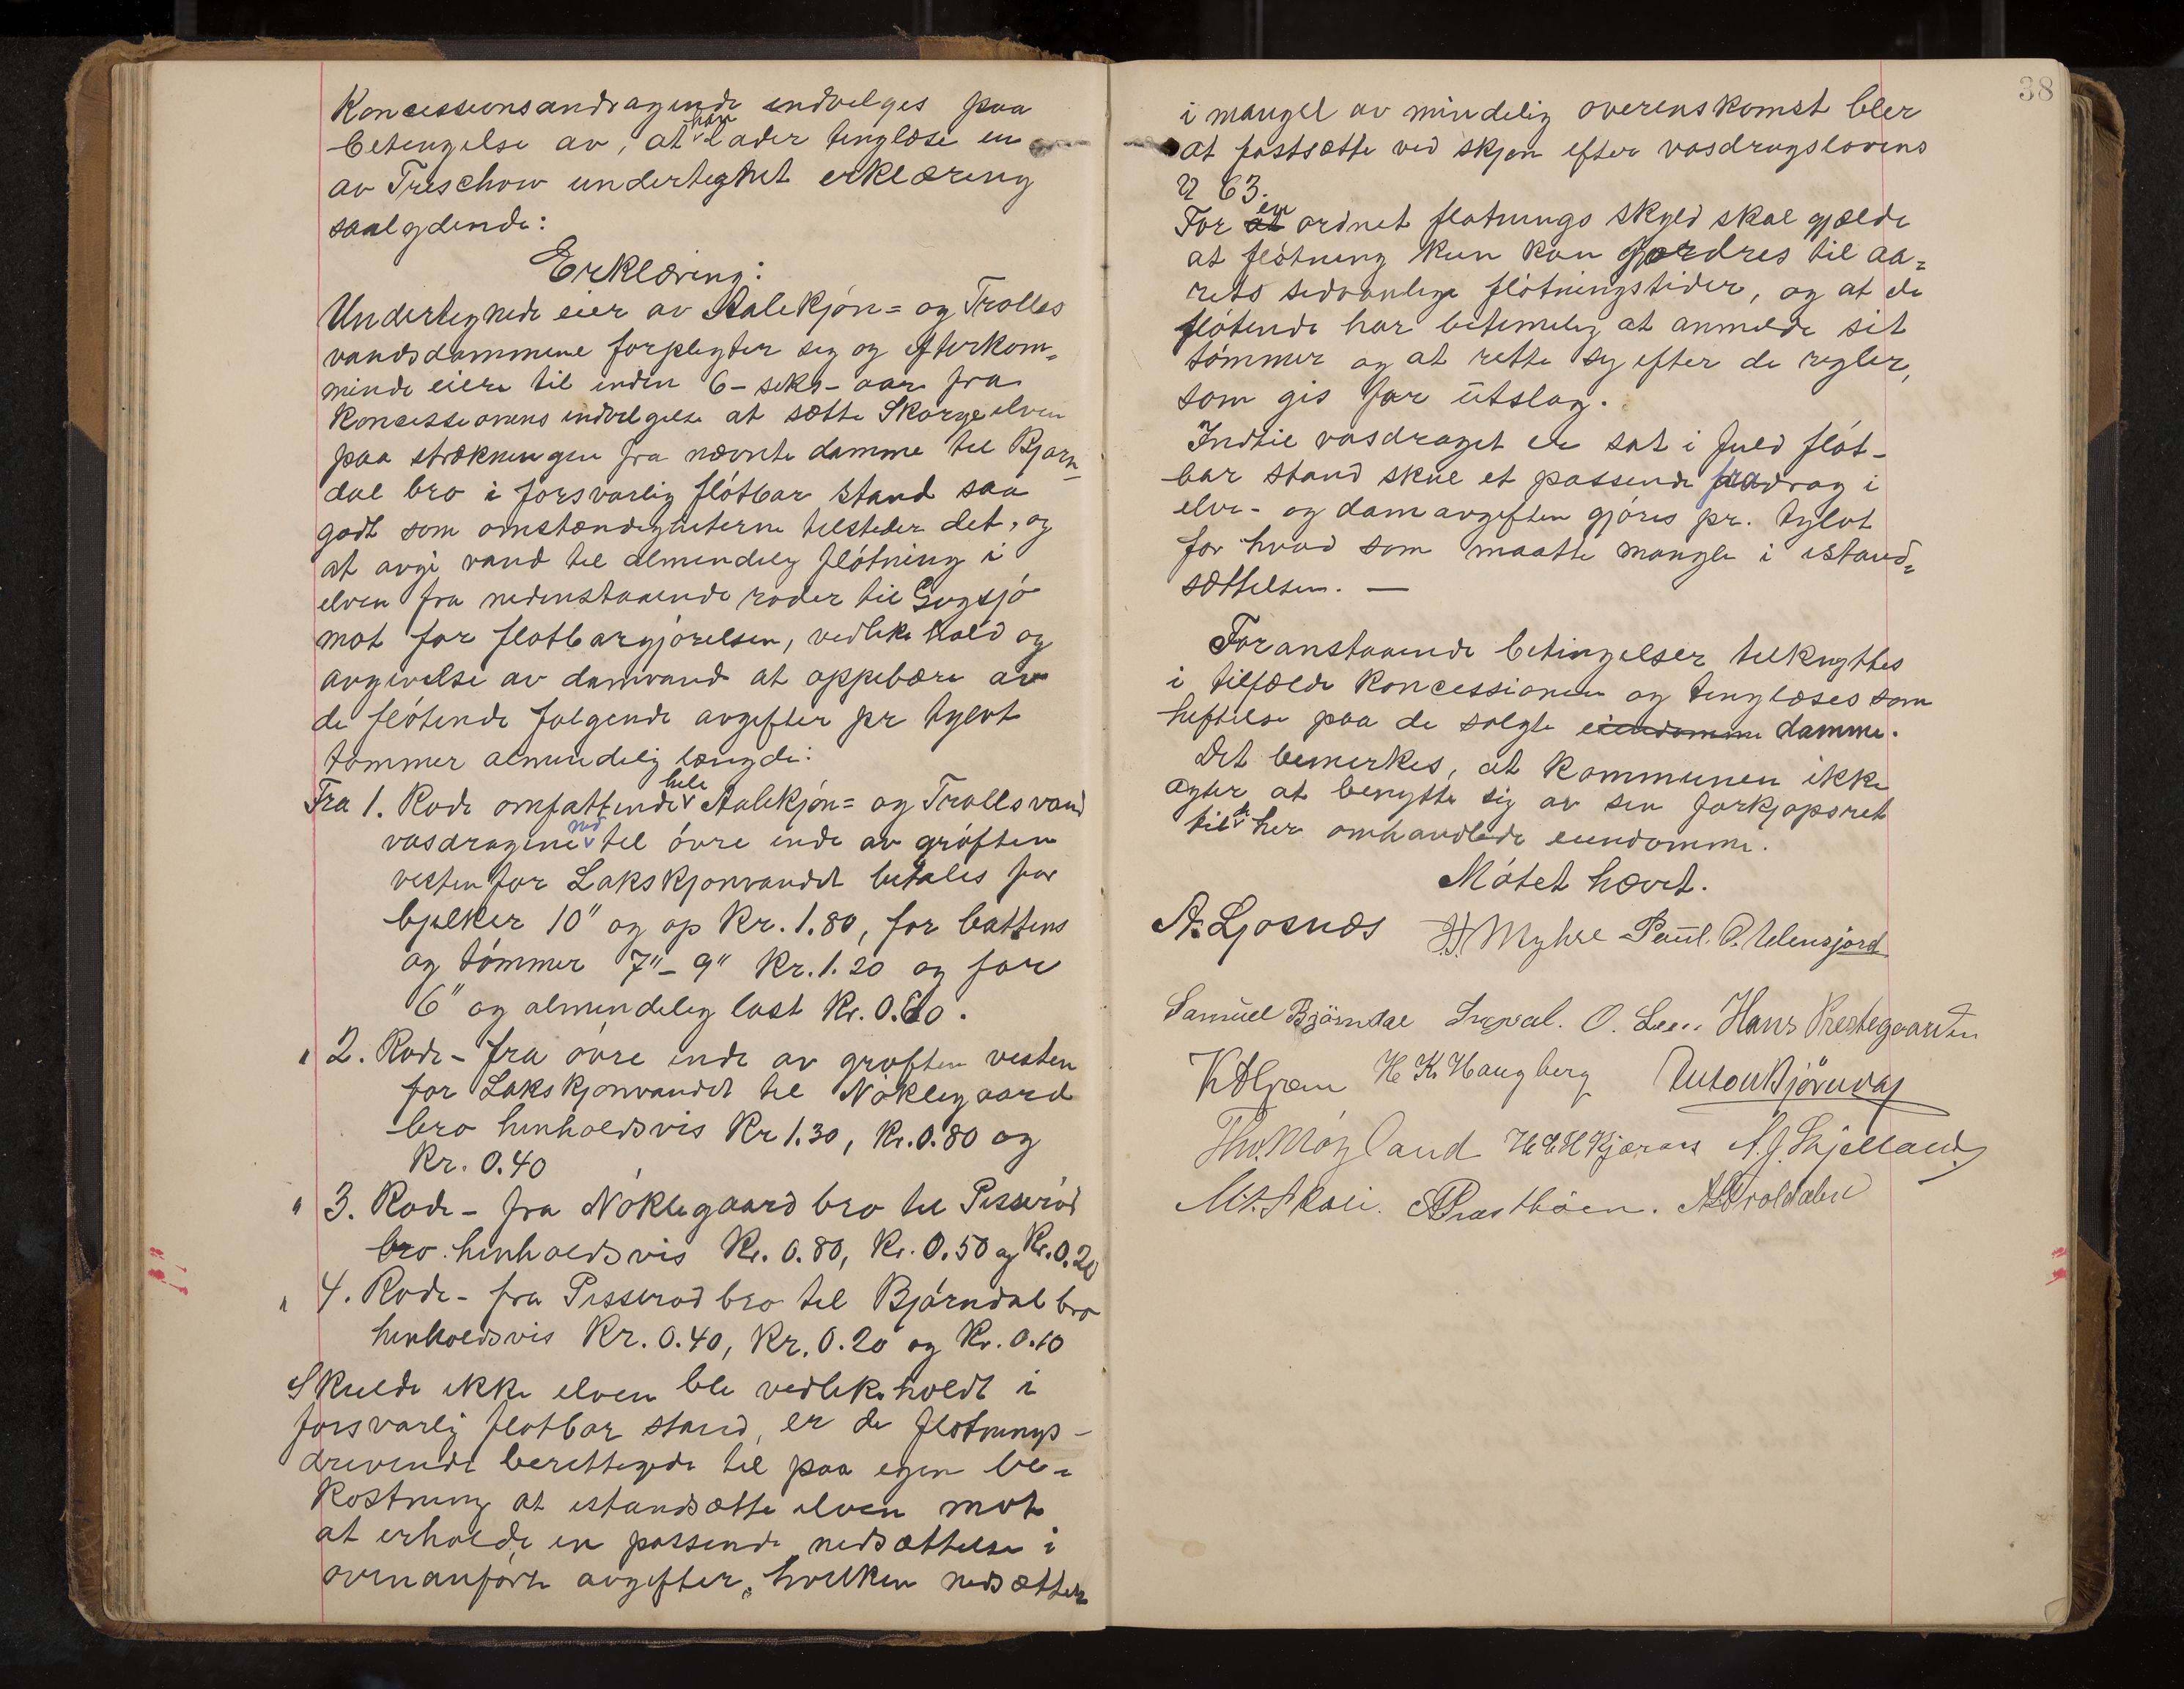 Koncessionsandragende indvilges paa
betingelse av, at han lader tinglæse en
av Treschow undertegnet erklæring
saalydende:
Erklæring:
Undertegnede eier av Aalekjøn= og Trolls
vandsdammene forpligter sig og efterkom=
mende eiere til inden 6 - seks - aar fra
koncessionens indvilgelse at sætte Skorgeelven
paa strækningen fra nævnte damme til Bjørn-
dal bro i forsvarlig fløtbar stand saa
godt som omstændigheterne tilsteder det, og
at avgi vand til almindelig fløtning i
elven fra nedenstaaende roder til Gogsjø
mot for fløtbargjørelsen, vedlikehold og
avgivelse av damvand at oppebære av
de fløtende følgende avgifter pr tylvt
tømmer almindelig længde:
Fra 1. Rode omfattende hele Aalekjøn= og Trollsvand
vasdragene ned til øvre ende av grøften
vesten for Lakskjønvandet betales for
bjelker 10" og op Kr. 1.80, for battens
og tømmer 7" - 9" Kr. 1.20 og for
6" og almindelig last Kr. 0.60.
" 2. Rode - fra øvre ende av grøften vesten
for Lakskjønvandet til Nøklegaard
bro henholdsvis Kr 1.30, Kr. 0.80 og
Kr. 0.40
" 3. Rode - fra Nøklegaard bro til Pisserød
bro henholdsvis Kr. 0.80, Kr. 0.50 og Kr. 0.20
" 4. Rode - fra Pisserød bro til Bjørndal bro
henholdsvis Kr. 0.40, Kr. 0.20 og Kr. 0.10
Skulde ikke elven bli vedlikeholdt i
forsvarlig fløtbar stand, er de fløtnings-
drivende berettigede til paa egen be-
kostning at istandsætte elven mot
at erholde en passende nedsættelse i
ovenanførte avgifter, hvilken nedsættelse
38
i mangel av mindelig overenskomst blir
at fastsætte ved skjøn efter vasdragslovens
§ 63.
For at en ordnet fløtnings skyld skal gjælde
at fløtning kun kan fordres til aa=
rets sedvanlige fløtningstider, og at de
fløtende har betimelig at anmelde sit
tømmer og at rette sig efter de regler,
som gis for utslag.
Indtil vasdraget er sat i fuld fløt-
bar stand skal et passende fradrag i
elve- og damavgiften gjøres pr. tylvt
for hvad som maatte mangle i istand=
sættelsen. —
Foranstaaende betingelser tilknyttes
i tilfælde koncessionen og tinglæses som
heftelse paa de solgte eiendomme damme.
Det bemerkes, at kommunen ikke
agter at benytte sig av sin forkjøpsret
til de her omhandlede eiendomme.
Møtet hævet.
A. Ljosnæs H Myhre Paul. O.
Samuel Bjørndal O. Hans Prestegaarden
H. K. Haugberg Anton Bjørndal
Thv. Møyland A. J. Skjelland